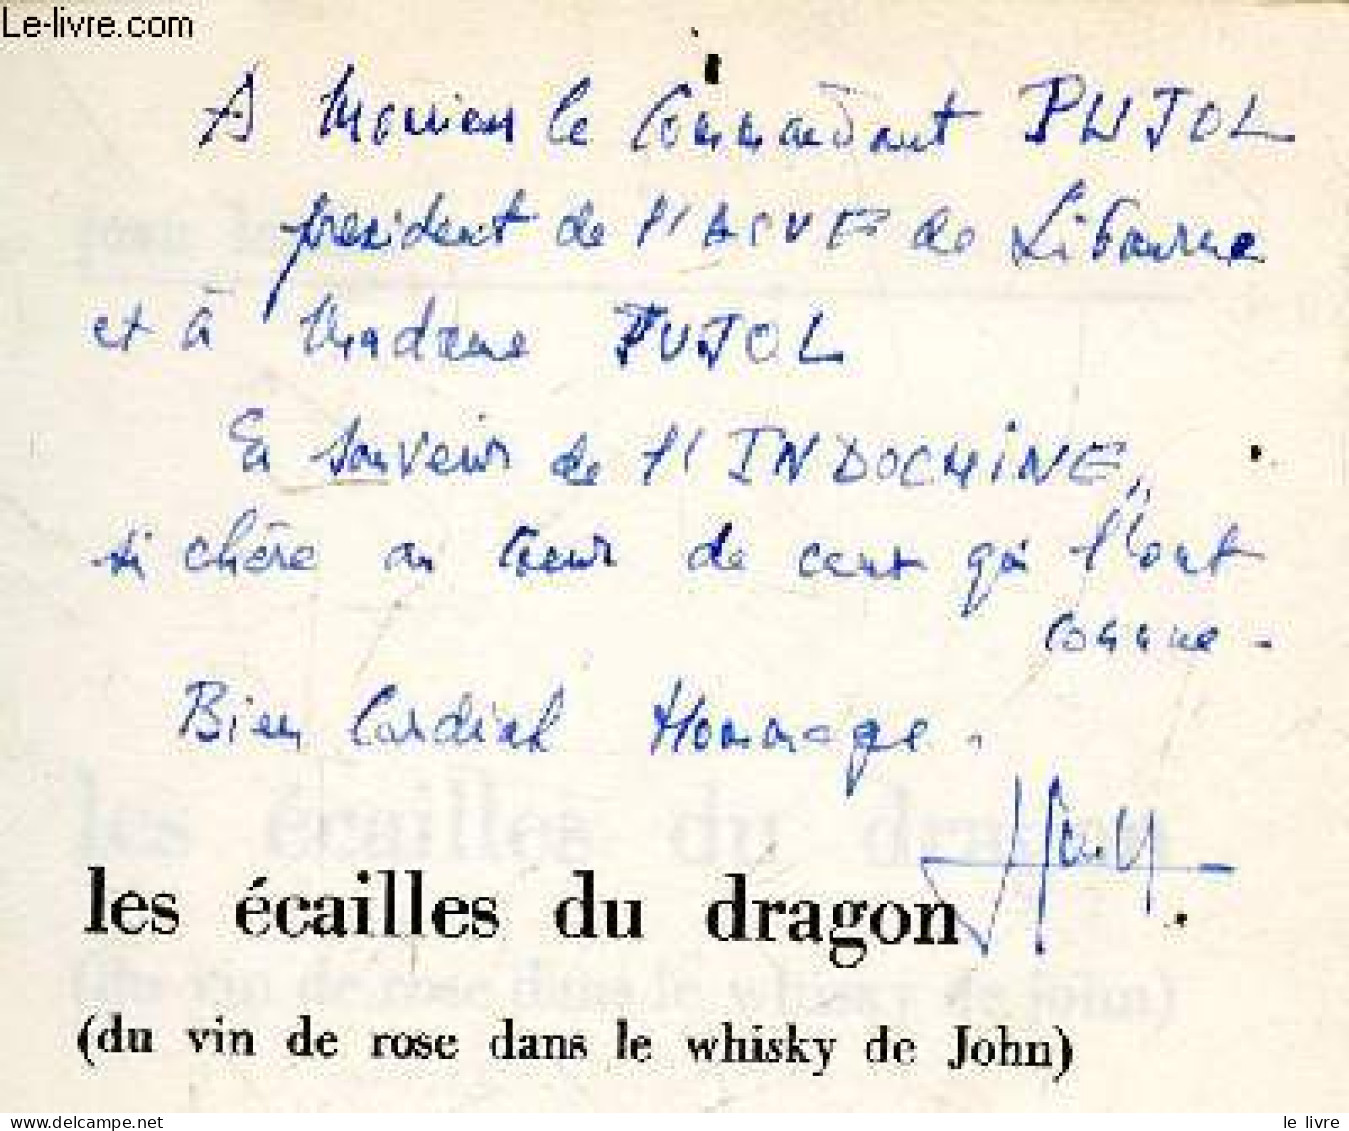 Le-livre.com
A Monsieur le Commandant PUJOL
president de l'ACUF de Libourne
et à Madame PUJOL
En souvenir de l'INDOCHINE,
si chère au coeur de ceux qui l'ont
connue -
Bien Cordial Hommage.
les écailles du dragon
(du vin de rose dans le whisky de John)
le livre